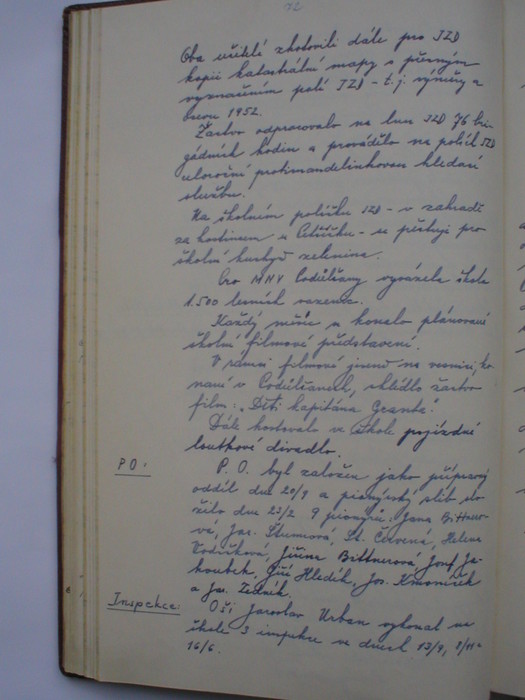 72
Oba učitelé zhotovili dále pro JZD
kopii katastrální mapy s přesným
vyznačením polí JZD - t.j. výměry z
února 1952.
Žactvo odpracovalo na lnu JZD 76 bri-
gádních hodin a provádělo na polích JZD
celoroční protimandelinkovou hledací
službu.
Na školním políčku JZD - v zahradě
za hostincem u - se pěstuje pro
školní kuchyň zelenina.
Pro MNV vyvázala škola
1.500 lesních sazenic.
Každý měsíc se konalo plánované
školní filmové představení.
V rámci filmové jízdy na vesnici, ko-
naní v shlédlo žactvo
film: "Děti kapitána Granta".
Dále hostovalo ve škole pojízdné
loutkové divadlo.
PO:
P. O. byl založen jako přípravný
oddíl dne 20/9 a pionýrský slib slo-
žilo dne 23/2 9 pionýrů: Jana Bittne-
rová, Jar. Šturmová, St. Červená, Helena
Jiřina Bittnerová, Josef Ja-
koubek, Jiří Hledík, Jos.
a Jar. Zedník.
Inspekce:
Oši Jaroslav Urban vykonal na
škole 3 inspekce ve dnech 13/9, 8/11 a
16/6.